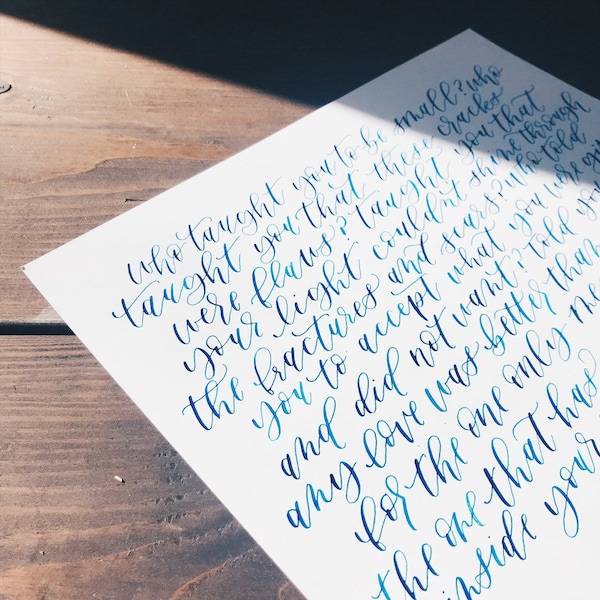 who taught you to be small? who
taught you that these cracks
were flaws? taught you that
your light couldn't shine through
the fractures and scars? who told
you to accept what you were
and did not want? told you
any love was better than
for the one only
the one that has
inside your